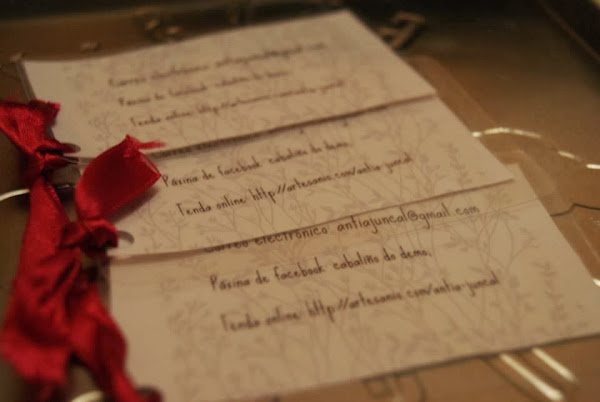 Correo electrónico: antiajuncal@gmail.com
Páxina de facebook: cabaliño do demo.
Tenda online: http://artesanio.com/antia-juncal
Páxina de facebook: cabaliño do demo.
Tenda online: http://artesanio.com/antia-juncal
Correo electrónico: antiajuncal@gmail.com
Páxina de facebook: cabaliño do demo.
Tenda online: http://artesanio.com/antia-juncal